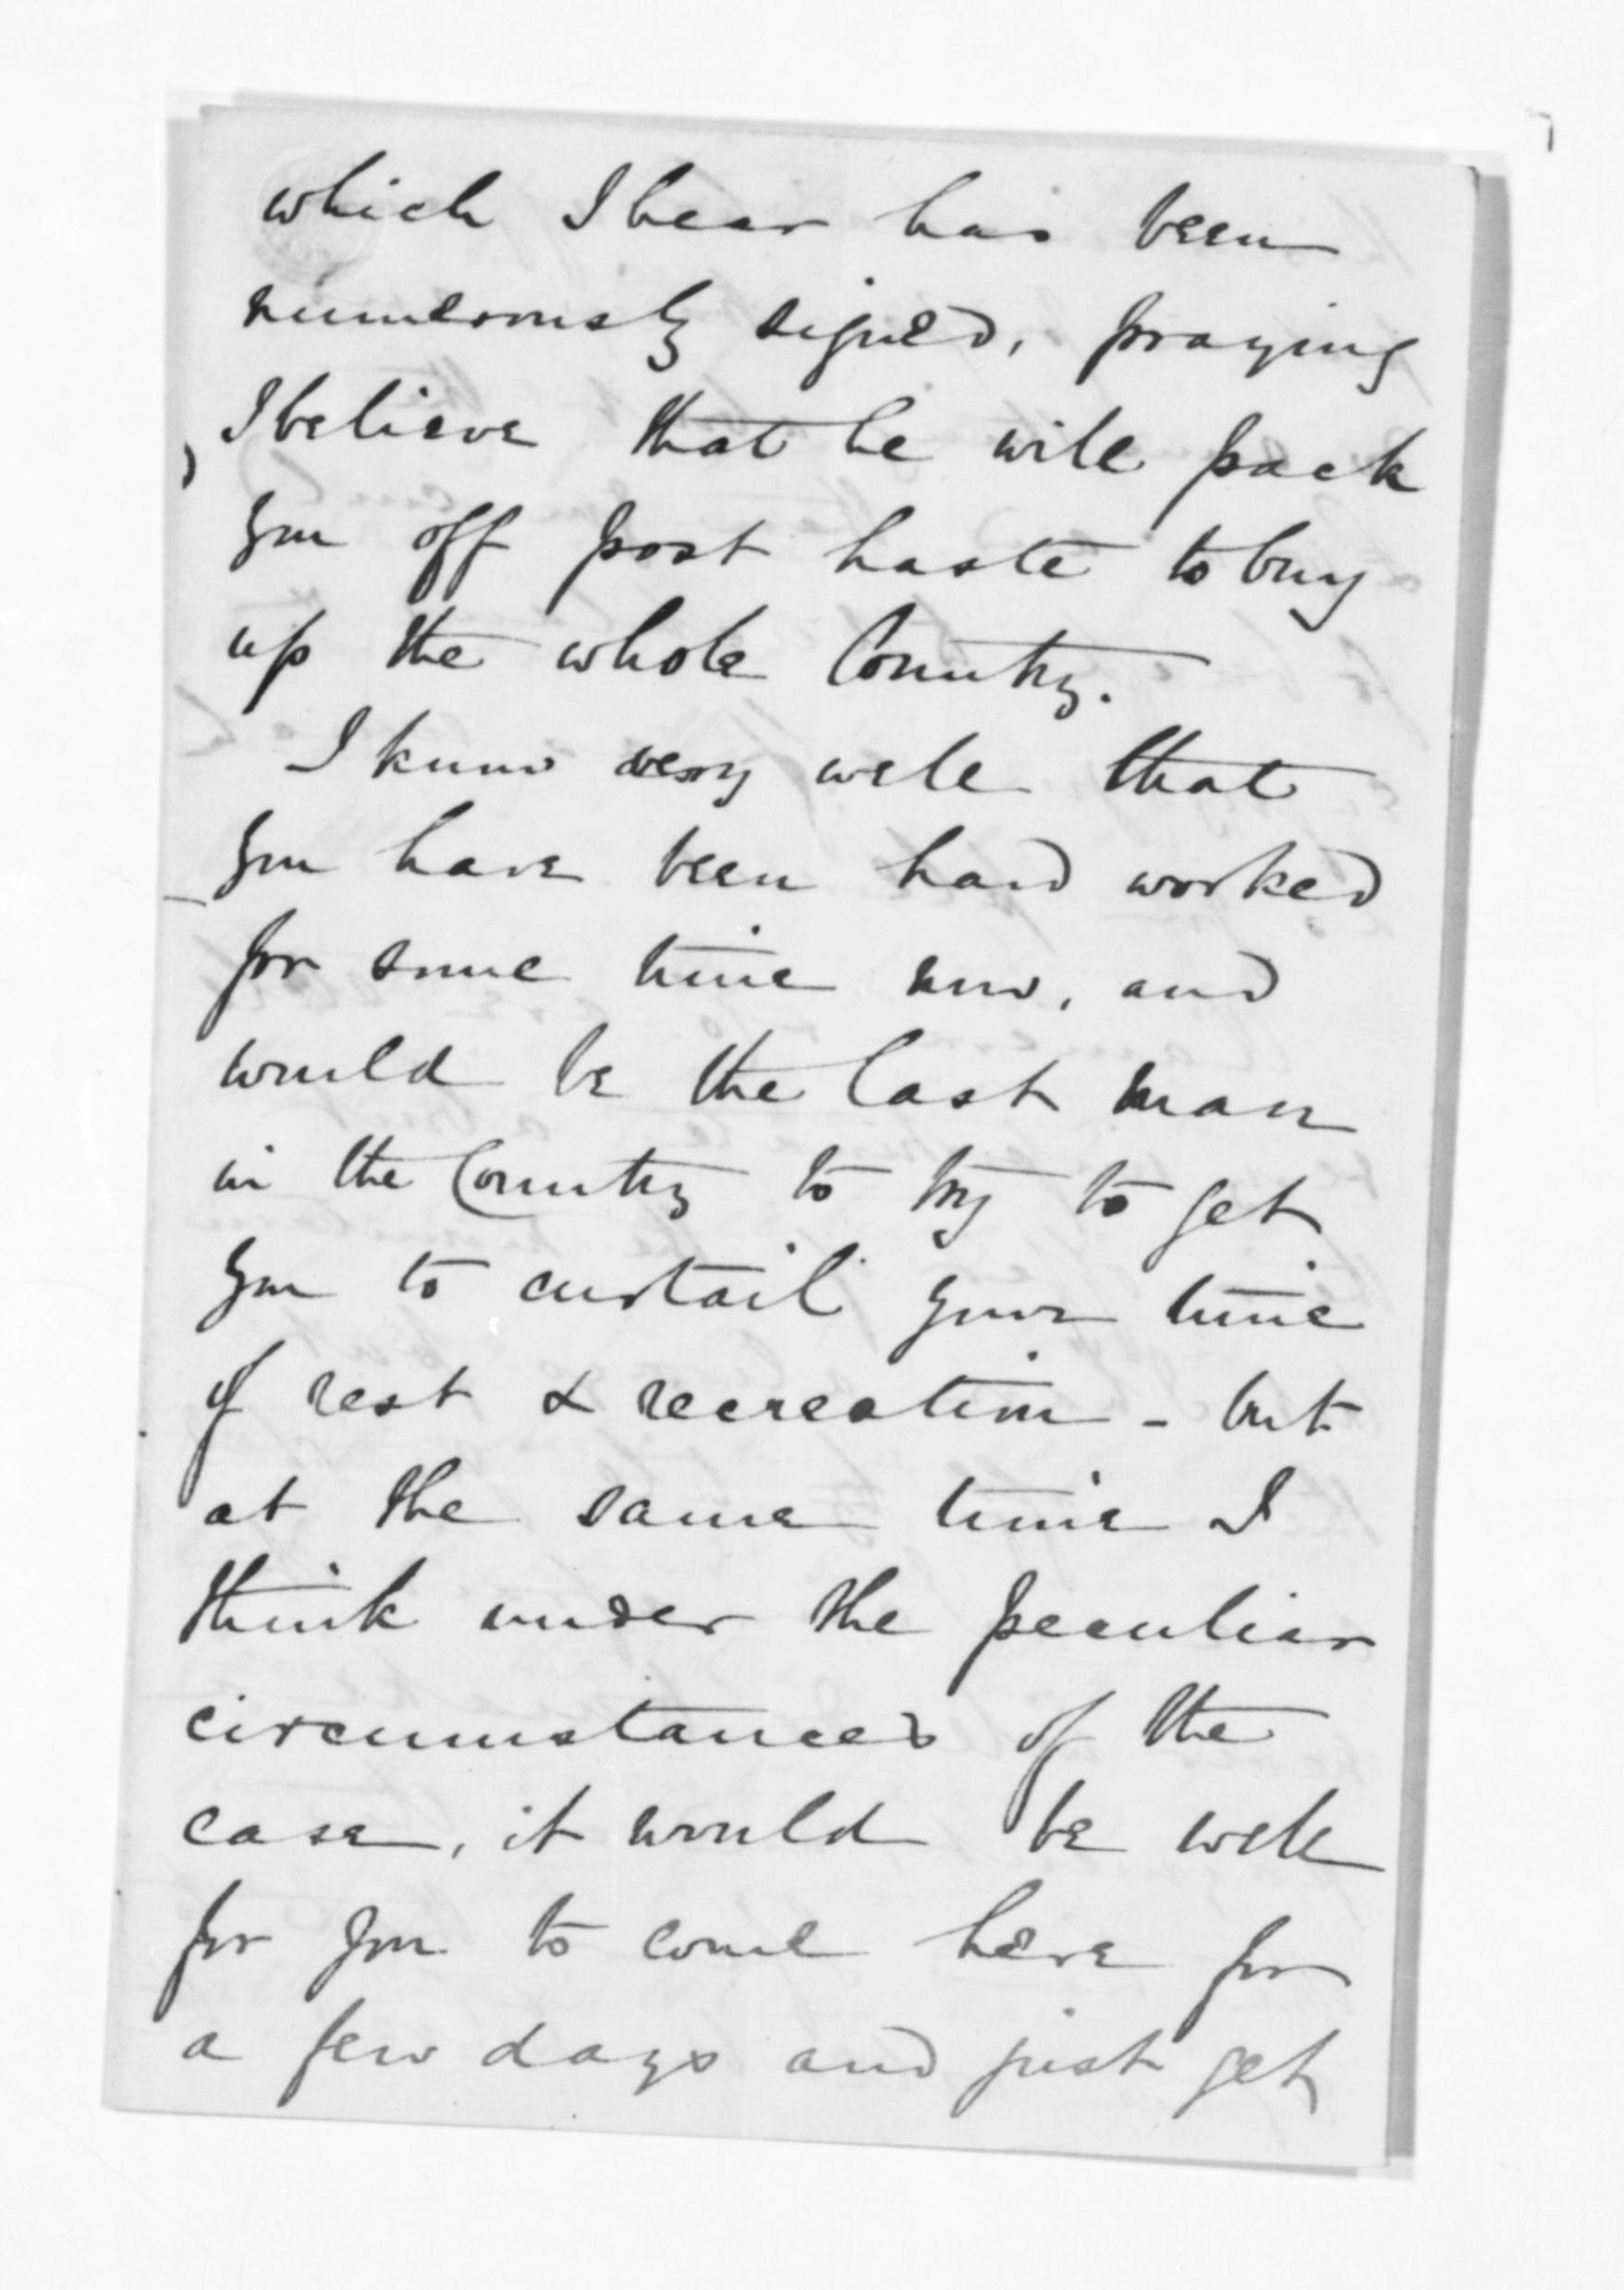 which I hear has been
numerously signed, praying
I believe that he will pack
you off post haste to buy
up the whole Country.
I know very well that
you have been hard worked
for some time now, and
would be the last man
in the Country to try to get
you to curtail your time
of rest & recreation - but
at the same time I
think under the peculiar
circumstances of the
case, it would be well
for you to come here for
a few days and just get